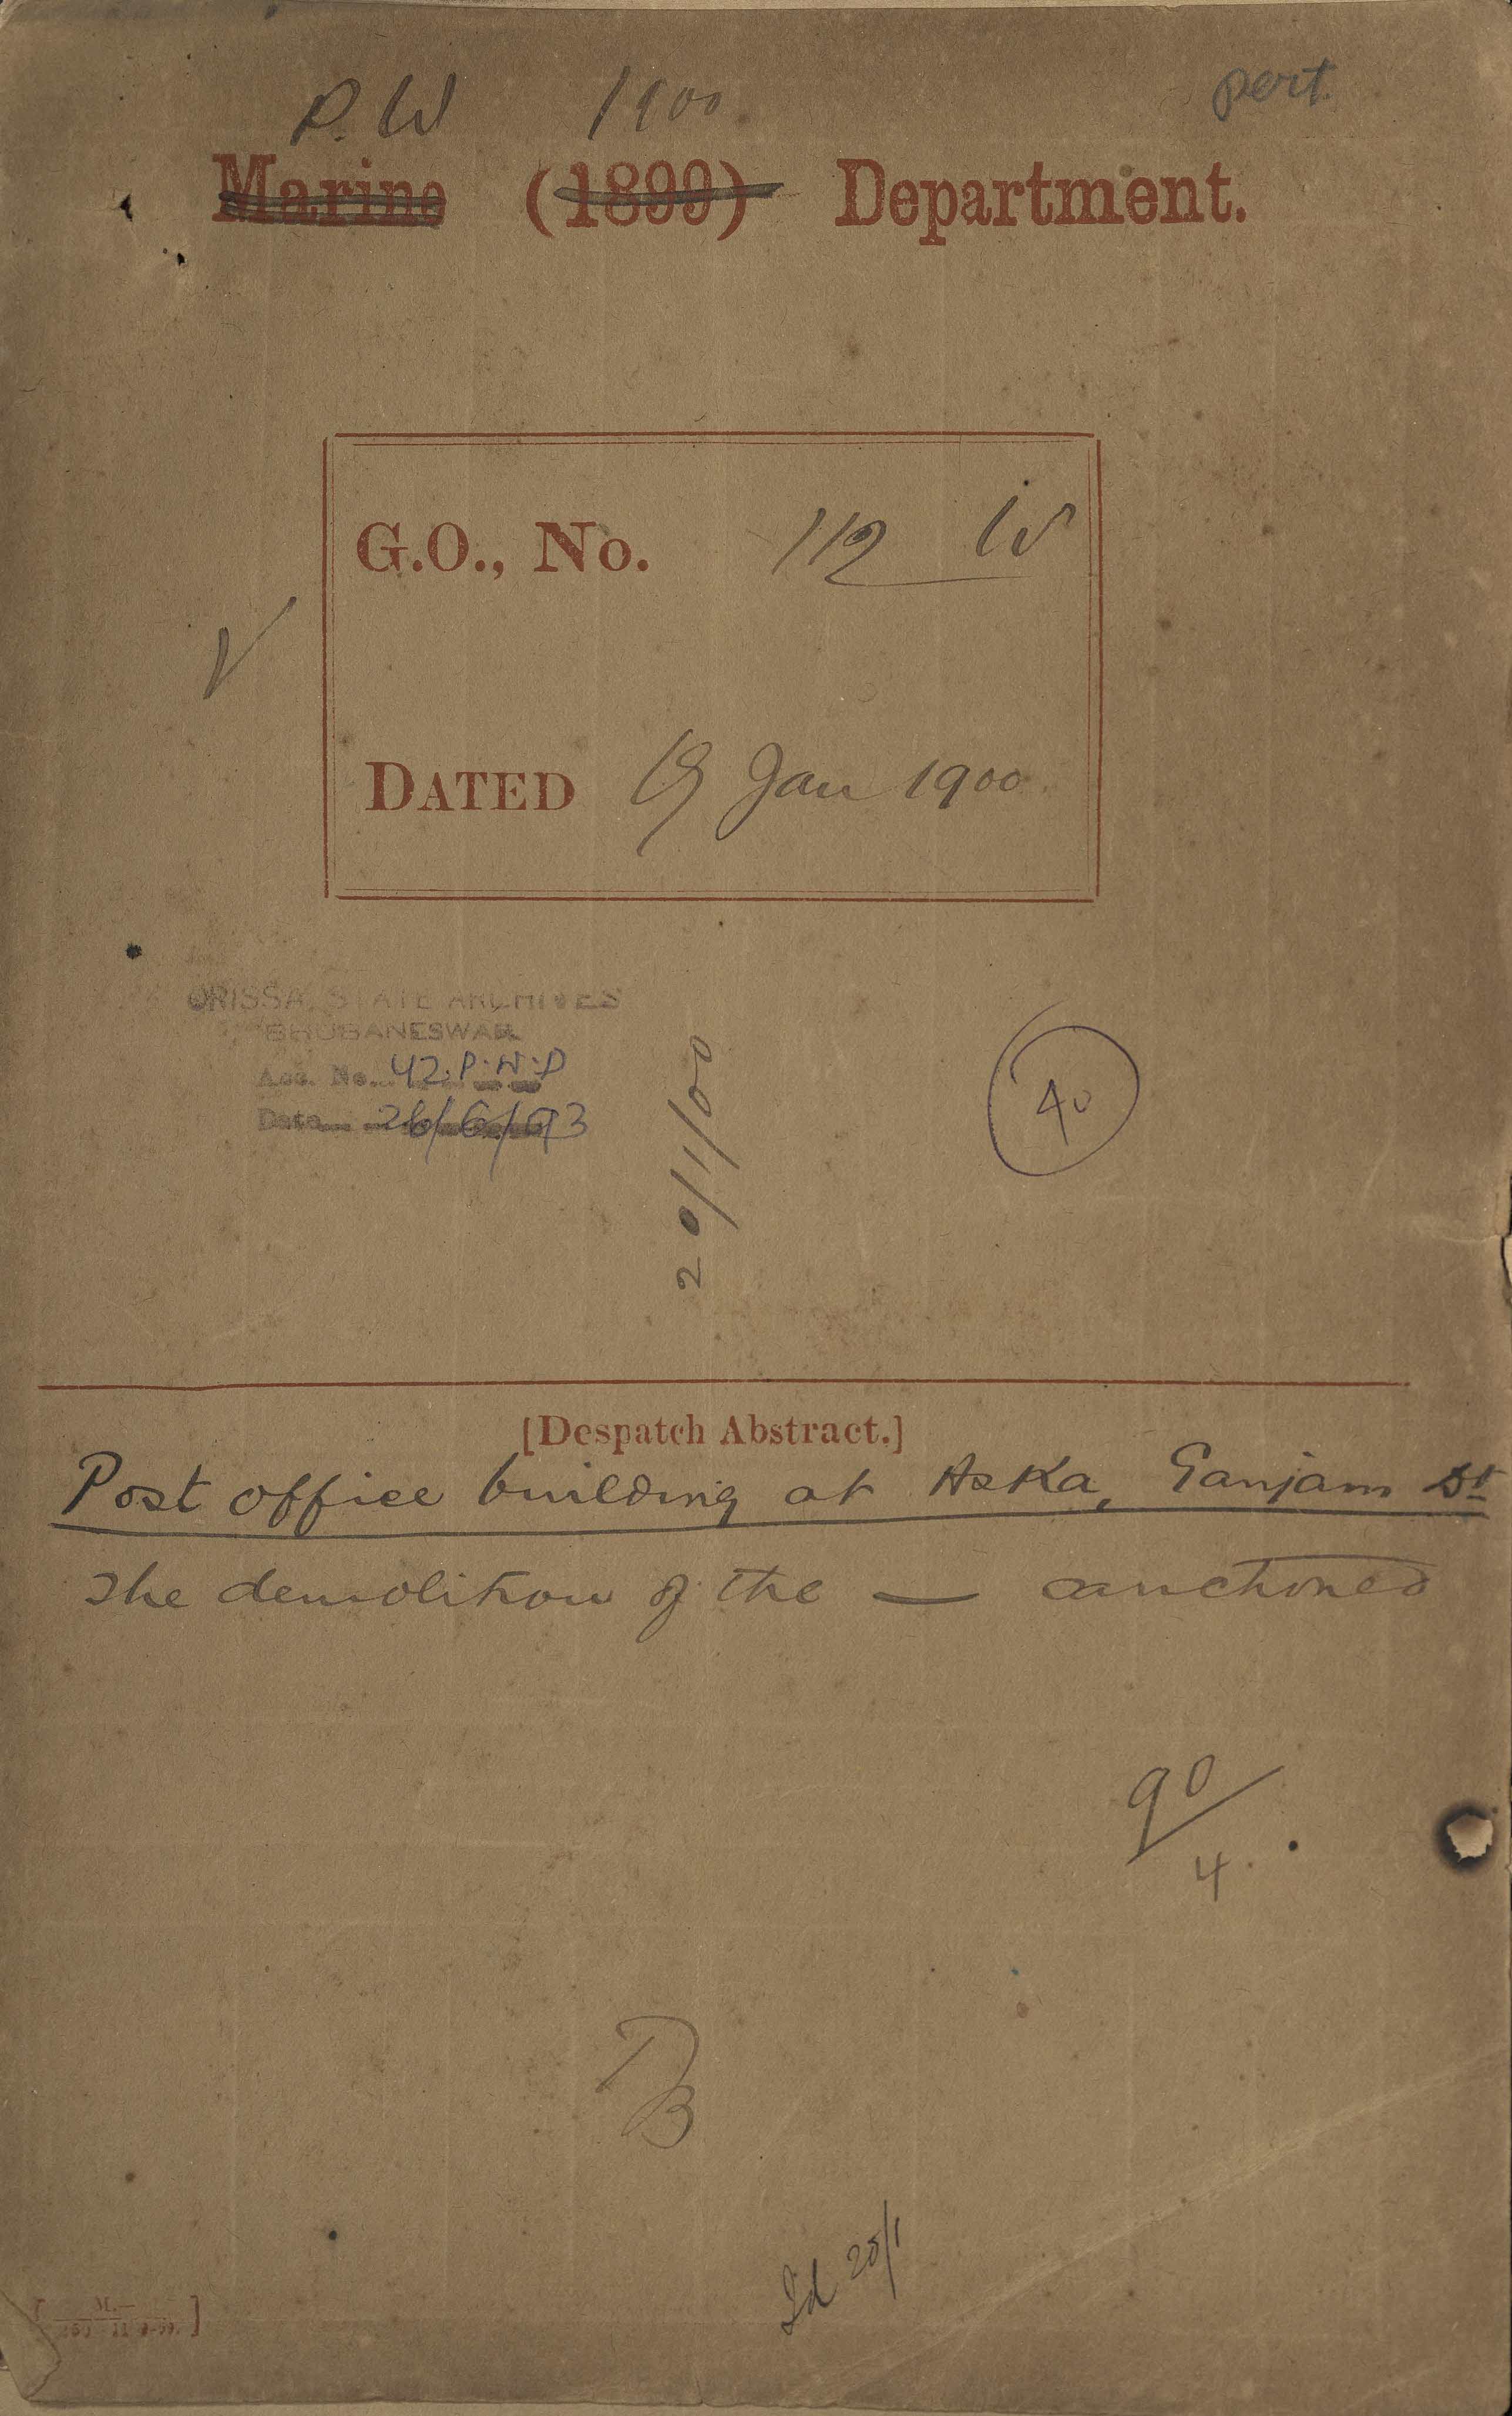 P.W 1900 pert.
Marine (1899) Department.
G.O., No. 112 W
DATED 19 Jan 1900.
ORISSA STATE ARCHIVES
BHUBANESWAR
Acc. No. 42.P.W.D
Date 26/6/93
20/1/00
40
[Despatch Abstract.]
Post office building at Aska, Ganjam Dt
The demolition of the — sanctioned
90/4.
20/1
[M.—